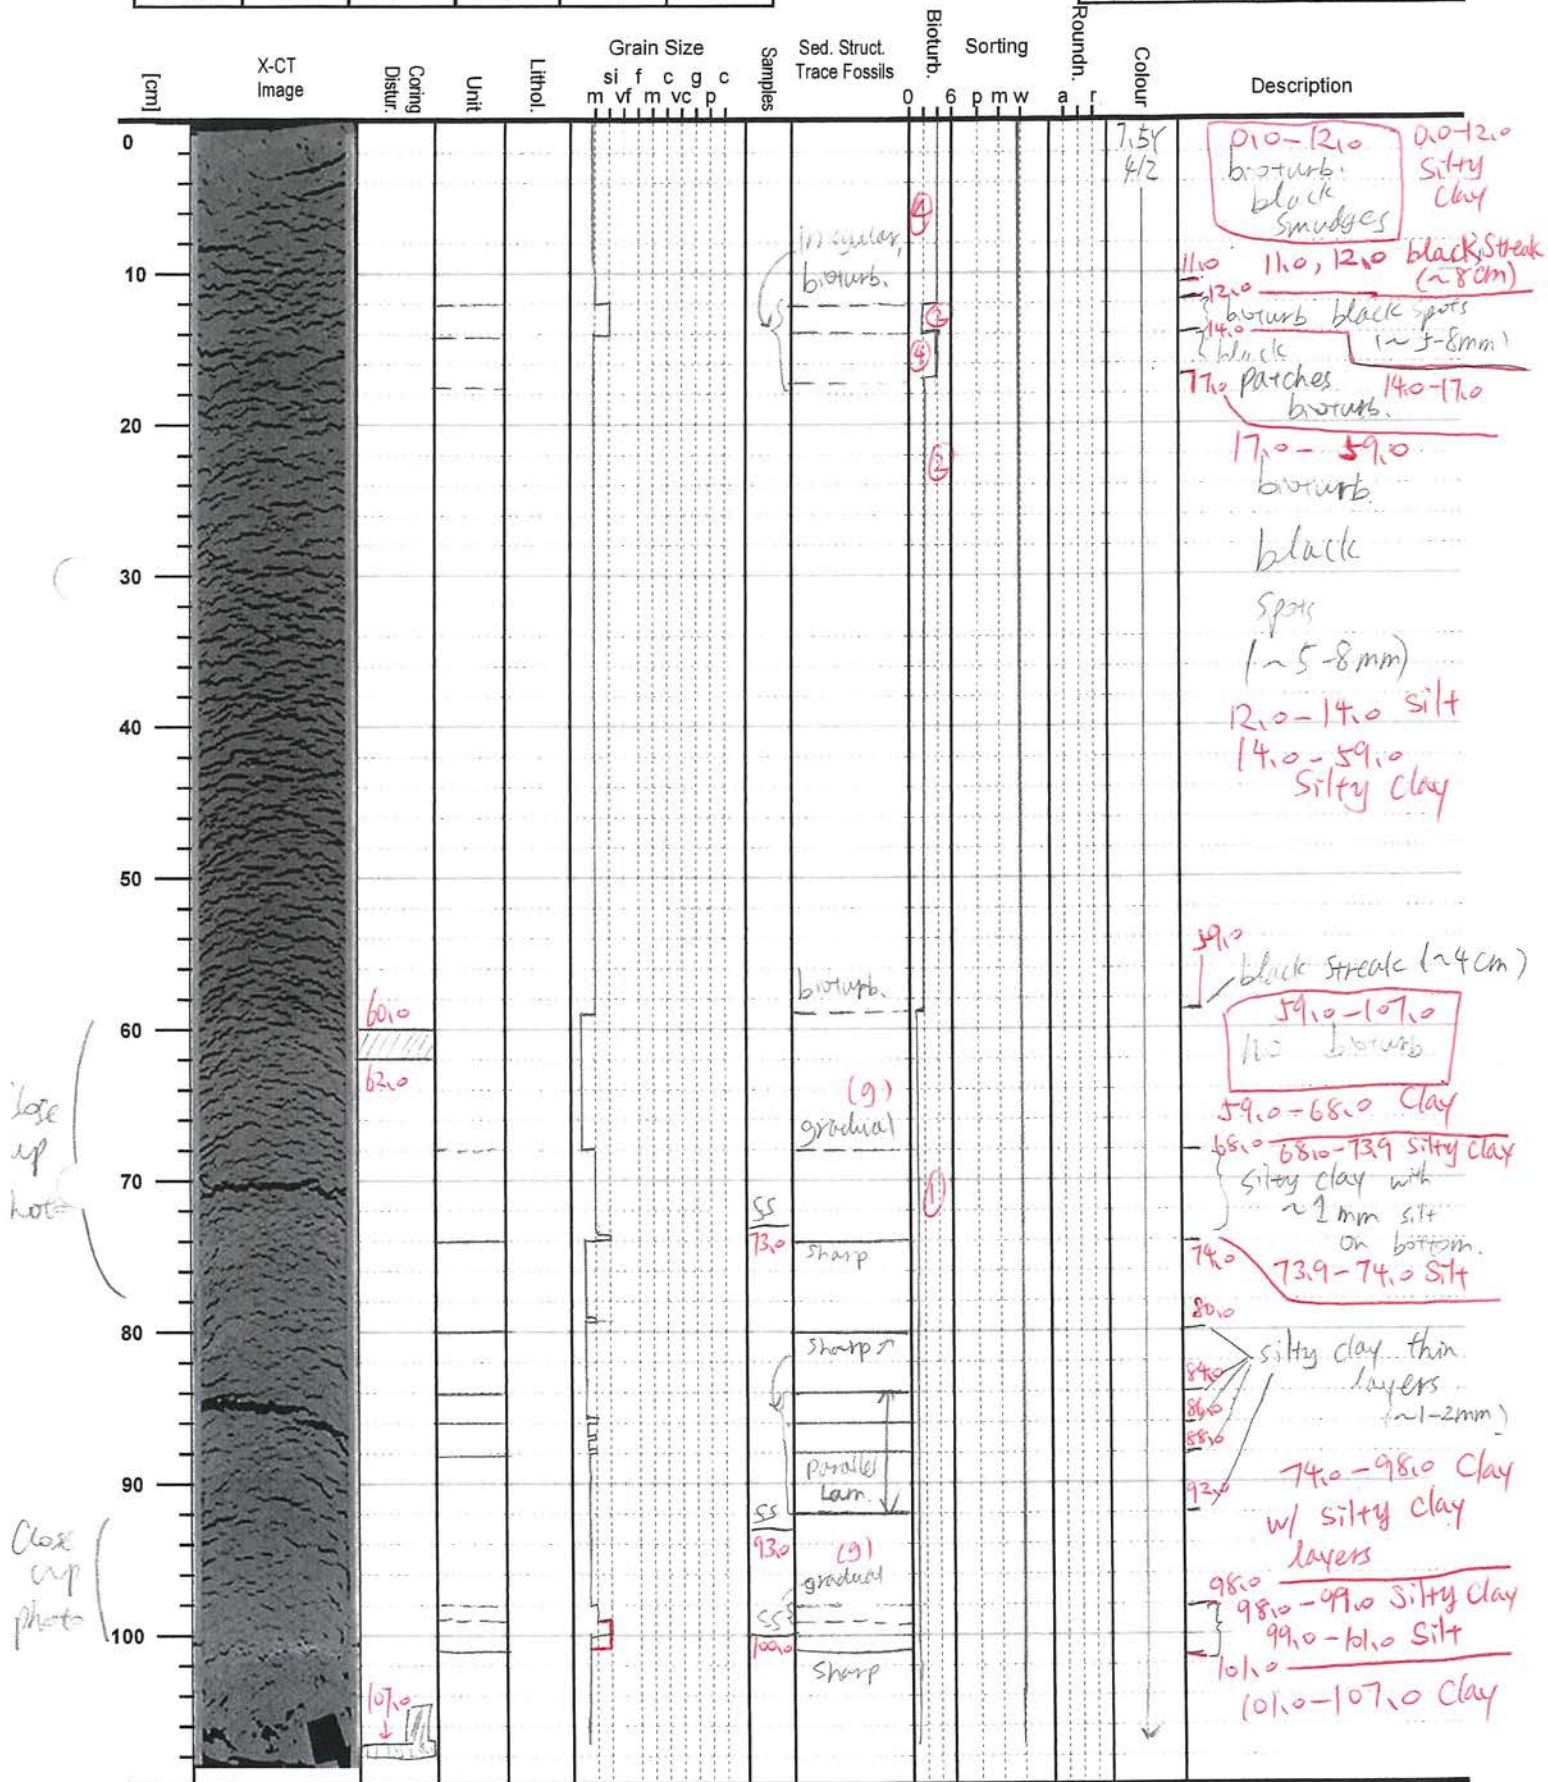 [cm]
X-CT
Image
Coring
Distur.
Unit
Lithol.
Grain Size
si f c g c
m vf m vc p
Samples
Sed. Struct.
Trace Fossils
Bioturb.
0 6
Sorting
p m w
Roundn.
a r
Colour
Description
0
10
20
30
40
50
60
70
80
90
100
60.0
62.0
107.0
Close
up
photo
SS
73.0
SS
93.0
SS
100.0
Irregular,
bioturb.
bioturb.
(g)
gradual
sharp
sharp
Parallel
Lam.
(g)
gradual
Sharp
4
2
4
2
1
7.5Y
4/2
0.0-12.0
bioturb.
black
smudges
0.0-12.0
Silty
Clay
11.0
11.0, 12.0 black Streak
(~8cm)
12.0
bioturb black spots
(~5-8mm)
14.0
black
17.0 patches 14.0-17.0
bioturb.
17.0-59.0
bioturb.
black
spots
(~5-8mm)
12.0-14.0 Silt
14.0-59.0
Silty Clay
59.0
black streak (~4cm)
59.0-107.0
no bioturb
59.0-68.0 Clay
68.0 68.0-73.9 Silty Clay
silty clay with
~1mm silt
on bottom.
74.0
73.9-74.0 Silt
80.0
silty clay thin
layers
(~1-2mm)
84.0
86.0
88.0
92.0
74.0-98.0 Clay
w/ Silty Clay
layers
98.0
98.0-99.0 Silty Clay
99.0-101.0 Silt
101.0
101.0-107.0 Clay